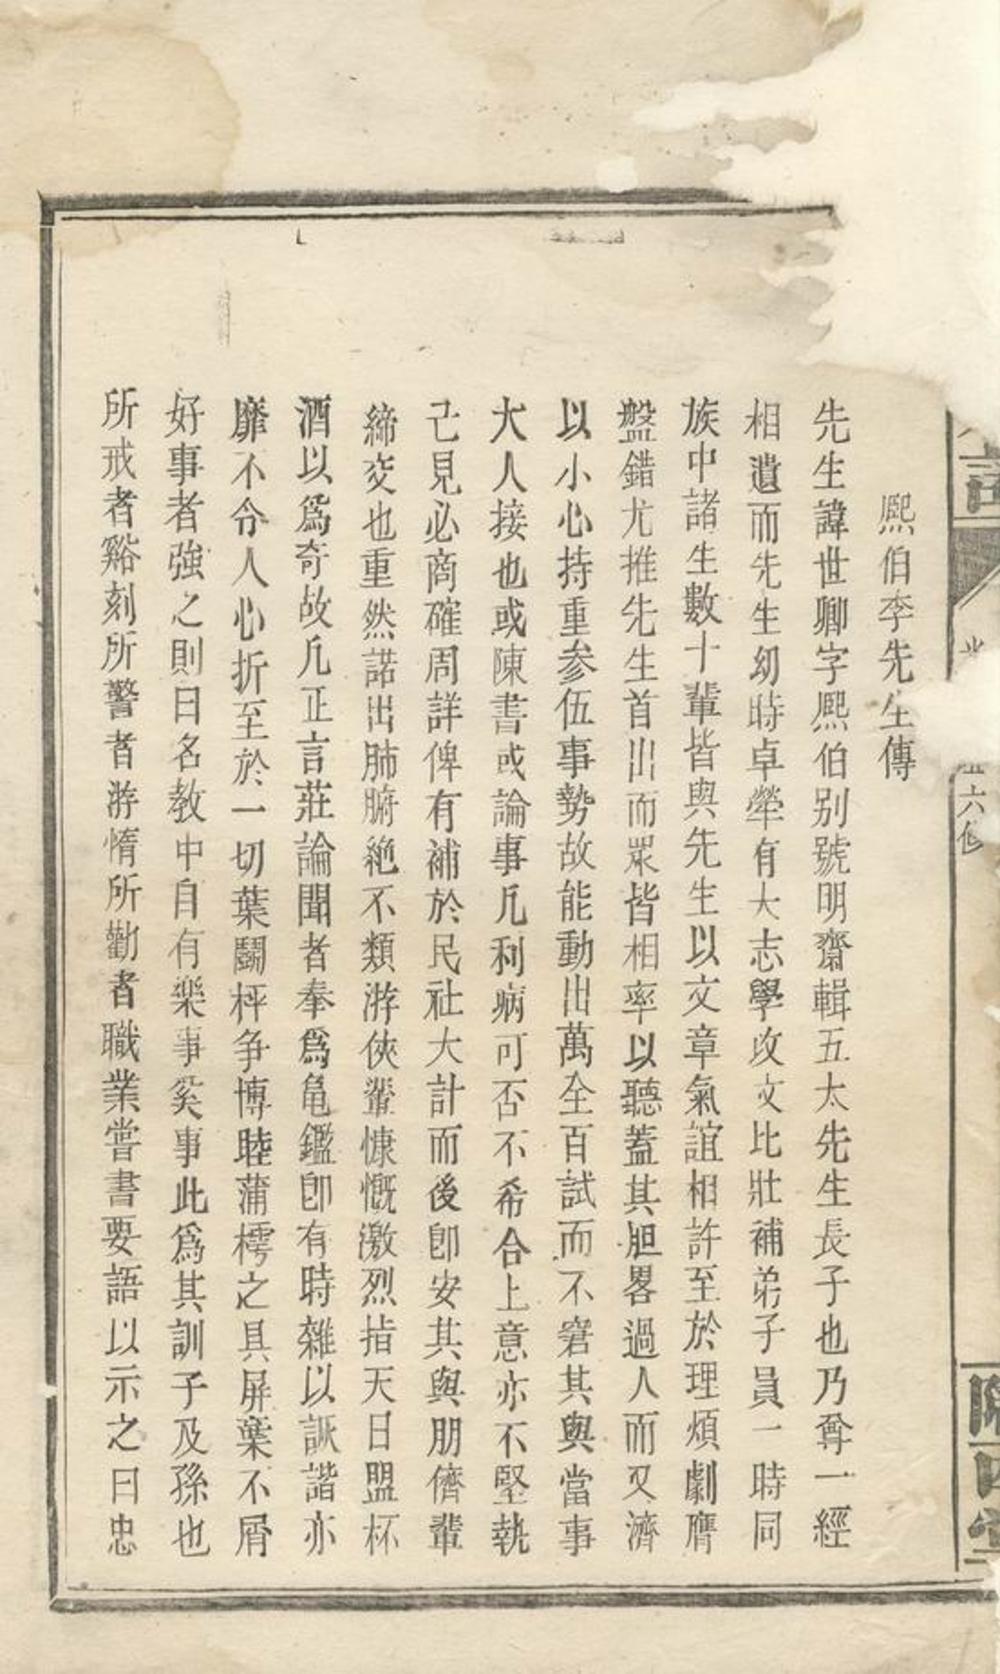 熈伯李先生傳
先生諱世卿字熈伯别號明齋輯五太先生長子也乃尊一經
相遺而先生幼時卓犖有大志學攻文比壯補弟子員一時同
族中諸生數十輩皆與先生以文章氣誼相許至於理煩劇膺
盤錯尤推先生首出而眾皆相率以聽蓋其胆畧過人而又濟
以小心持重參伍事勢故能動出萬全百試而不窘其與當事
大人接也或陳書或論事凡利病可否不希合上意亦不堅執
己見必商確周詳俾有補於民社大計而後卽安其與朋儕輩
締交也重然諾出肺腑絶不類游俠輩慷慨激烈指天日盟杯
酒以爲奇故凡正言莊論聞者奉爲龟鑑卽有時雜以詼諧亦
靡不令人心折至於一切葉鬭枰争博睦蒲樗之具屏棄不屑
好事者強之則曰名教中自有樂事奚事此爲其訓子及孫也
所戒者谿刻所警者游惰所勸者職業嘗書要語以示之曰忠
六修